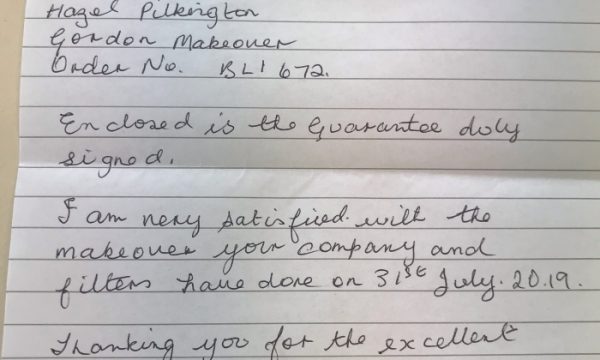 Hazel Pilkington
Gordon Makeover
Order No. BL1672.
Enclosed is the Guarantee duly
signed.
I am very satisfied with the
makeover your company and
fitters have done on 31st July. 2019.
Thanking you for the excellent